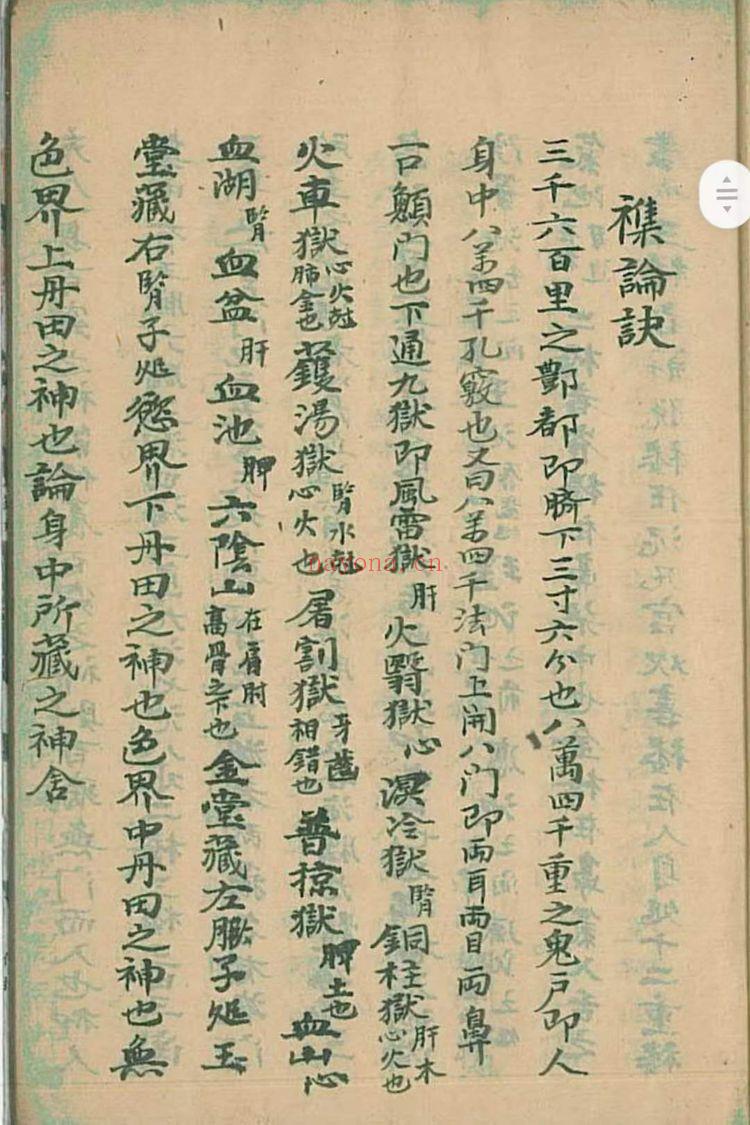 襍論訣
三千六百里之酆都即臍下三寸六分也八萬四千重之鬼户即人
身中八万四千孔竅也又曰八万四千法门上開八门即両耳両目両鼻
一口顖门也下通九獄即風雷獄肝火翳獄心溟冷獄腎銅柱獄肝木心火也
火車獄心火尅肺金也鑊湯獄腎水尅心火也屠割獄牙齒相錯也普掠獄脾土也血山心
血湖腎血盆肝血池脾六陰山在肩肘高骨之下也金堂藏左眼子処玉
堂藏右腎子処慾界下丹田之神也色界中丹田之神也無
色界上丹田之神也論身中所藏之神舍
nayona.cn